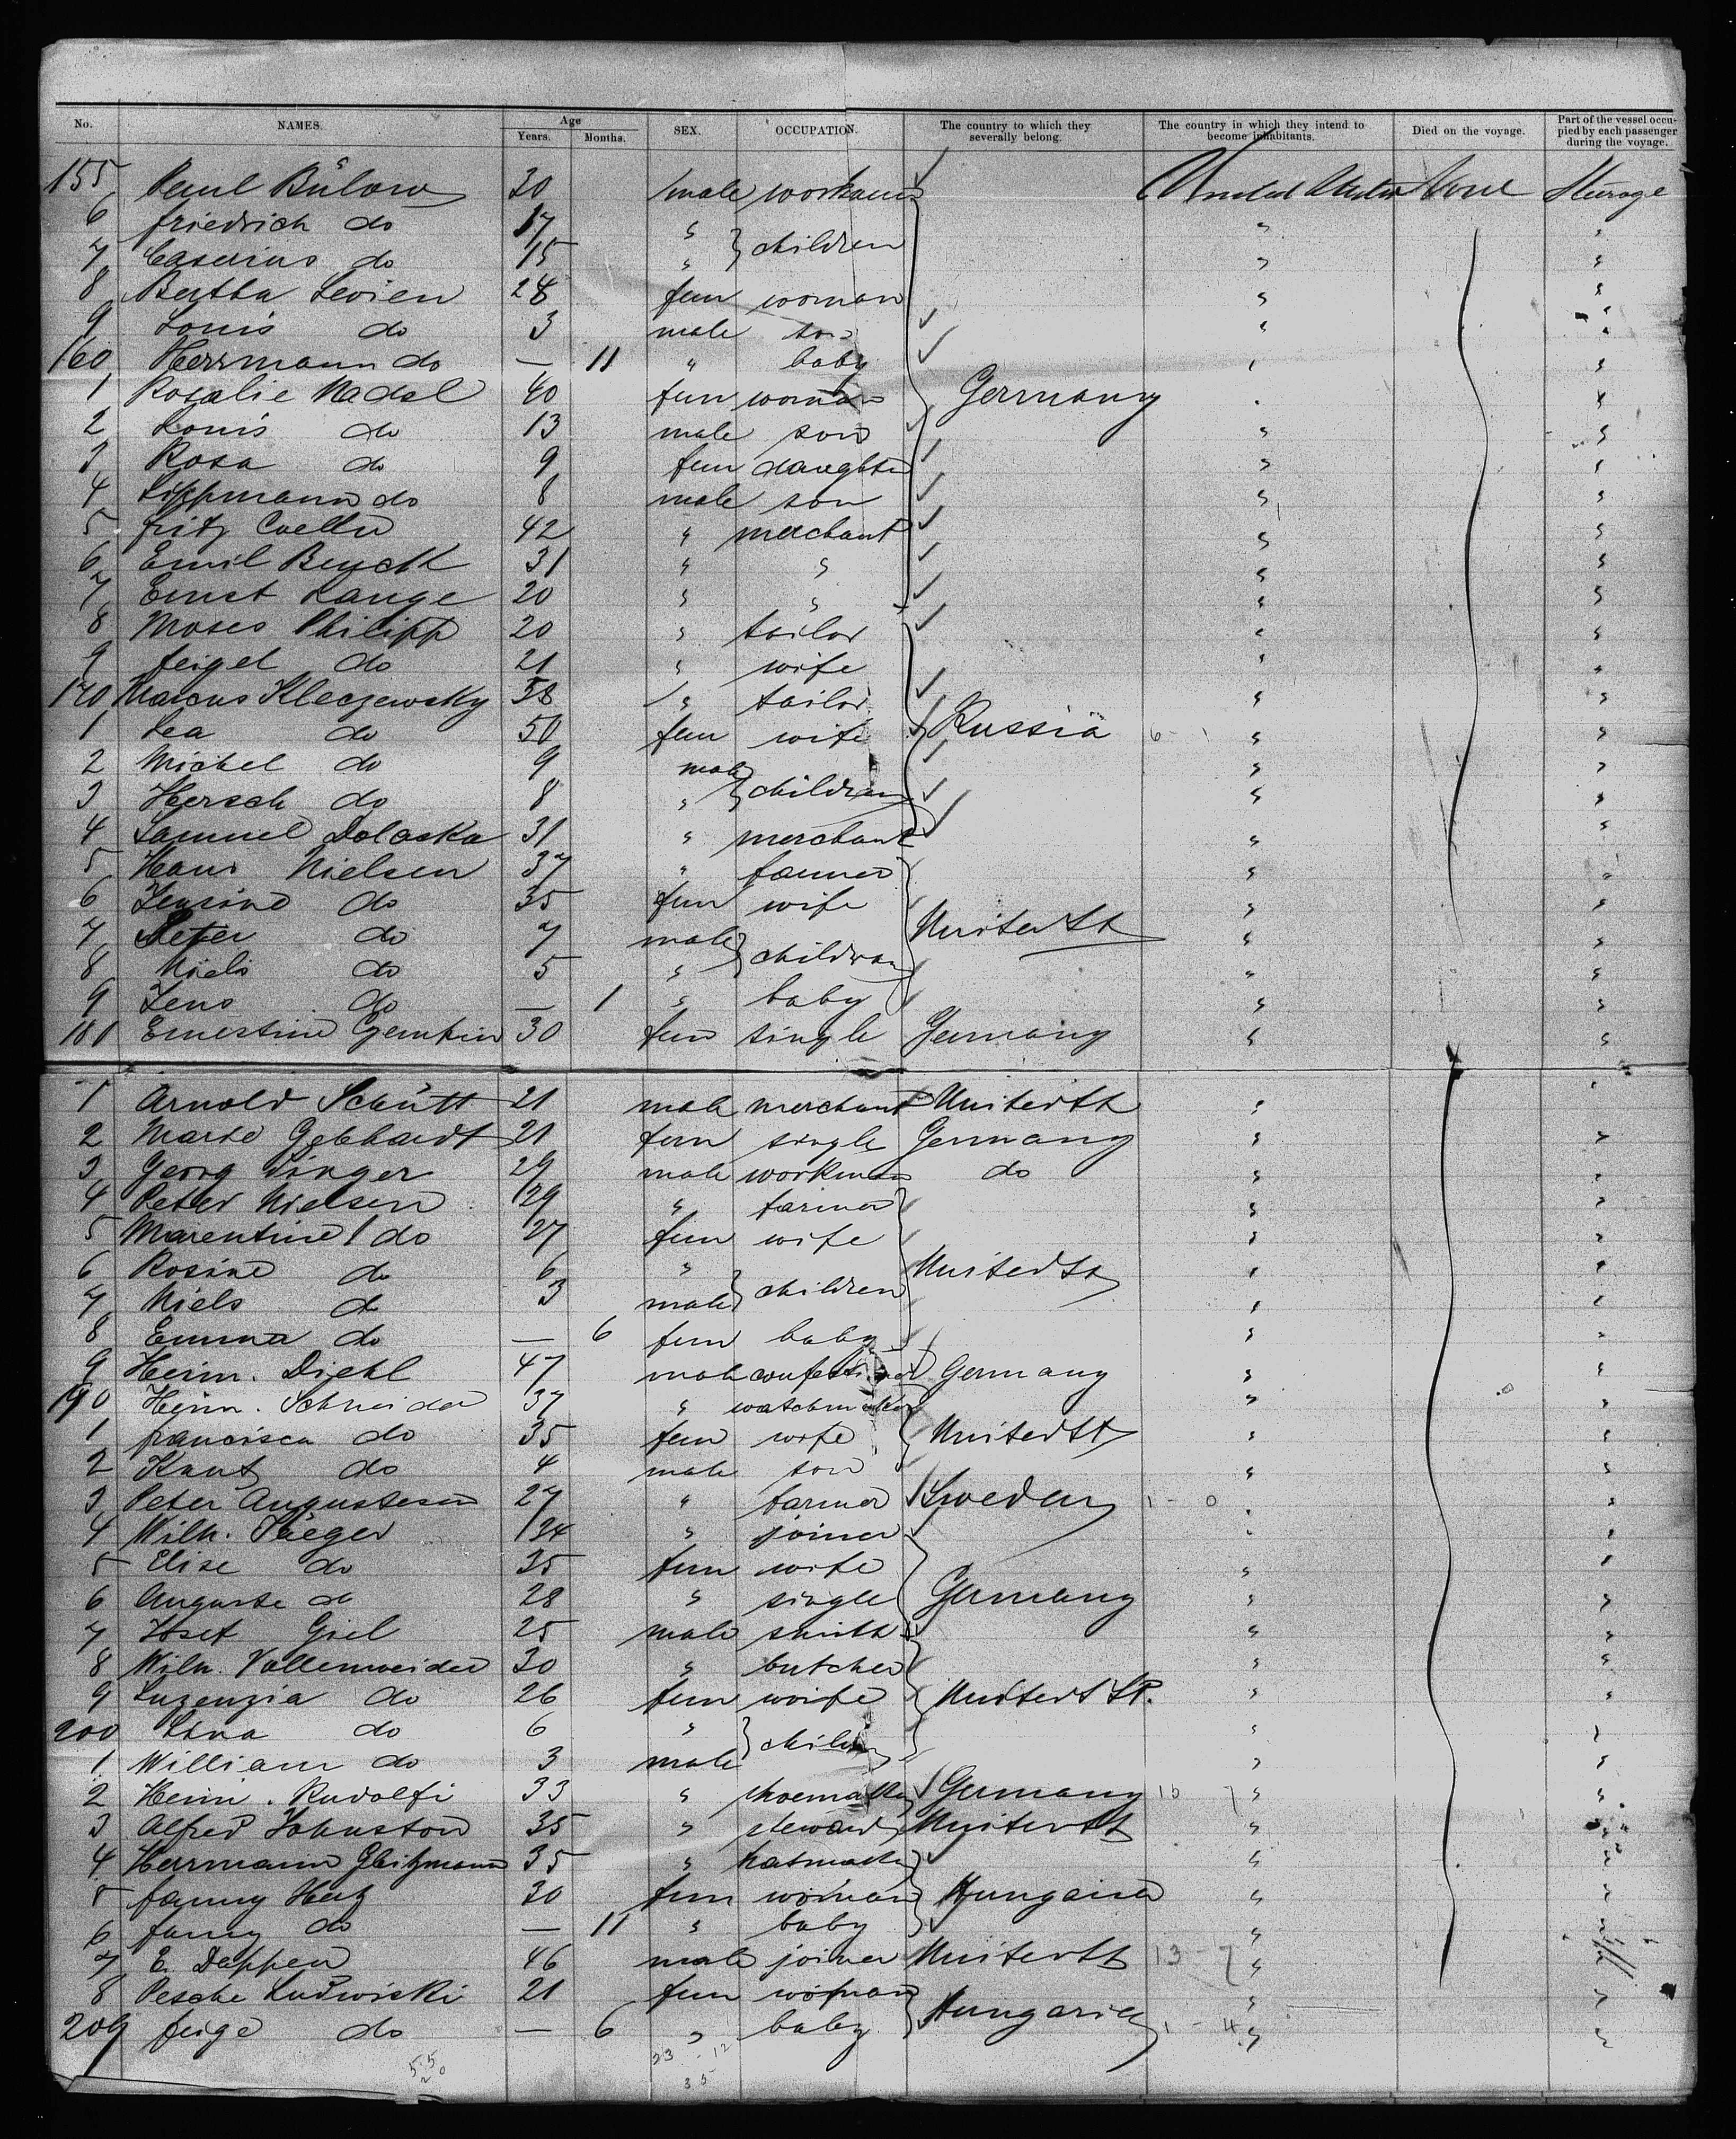 No. NAMES. Age Years. Months. SEX. OCCUPATION. The country to which they severally belong. The country in which they intend to become inhabitants. Died on the voyage. Part of the vessel occupied by each passenger during the voyage.
155 Paul Bülow 30 male workman United States None Steerage
6 friedrich do 17 " children " "
7 do 15 " " "
8 Bertha Levien 28 fem woman " "
9 Louis do 3 male son " "
160 Herrmann do — 11 " baby " "
1 Rosalie Nadel 40 fem woman Germany " "
2 Louis do 13 male son " "
3 Rosa do 9 fem daughter " "
4 Lippmann do 8 male son " "
5 fritz 42 " merchant " "
6 Emil 31 " " " "
7 Ernst Lange 20 " " " "
8 Moses Philipp 20 " tailor " "
9 feigel do 21 " wife " "
170 Marcus Kleczewsky 58 " tailor " "
1 Lea do 50 fem wife Russia 6 - 1 " "
2 Michel do 9 male children " "
3 Hersch do 8 " " "
4 Samuel Dolaska 31 " merchant " "
5 Hans Nielsen 37 " farmer " "
6 Jensine do 35 fem wife " "
7 Peter do 7 male children United St " "
8 Niels do 5 " " "
9 Jens do — 1 " baby " "
180 Ernestine 30 fem single Germany " "
1 Arnold Schütt 21 male merchant United St " "
2 Marie Gebhardt 21 fem single Germany " "
3 Georg Singer 29 male workman do " "
4 Peter Nielsen 29 " farmer " "
5 Marentine do 27 fem wife " "
6 Rosine do 6 " children United St " "
7 Niels do 3 male " "
8 Emma do — 6 fem baby " "
9 Heinr. Diehl 47 male confectioner Germany " "
190 Heinr. Schneider 37 " watchmaker " "
1 francisca do 35 fem wife United St " "
2 do 4 male son " "
3 Peter Augustesen 27 " farmer Sweden 1 - 0 " "
4 Wilh. 34 " joiner " "
5 Elise do 35 fem wife " "
6 Auguste do 28 " single Germany " "
7 Josef Giel 25 male smith " "
8 Wilh. Vollenweider 30 " butcher " "
9 do 26 fem wife United St. " "
200 do 6 " children " "
1 William do 3 male " "
2 Heinr. Rudolfi 33 " shoemaker Germany 10 7 " "
3 Alfred Johnston 35 " steward United St " "
4 Herrmann Glitzmann 35 " hatmaker " "
5 fanny Herz 30 fem woman Hungaria " "
6 fanny do — 11 " baby " "
7 E. Deppen 46 male joiner United St 13 - 7 " "
8 Pesche Ludwiski 21 fem woman Hungaria " "
209 feige do — 6 " baby 1 - 4 " "
23 - 12
55
35